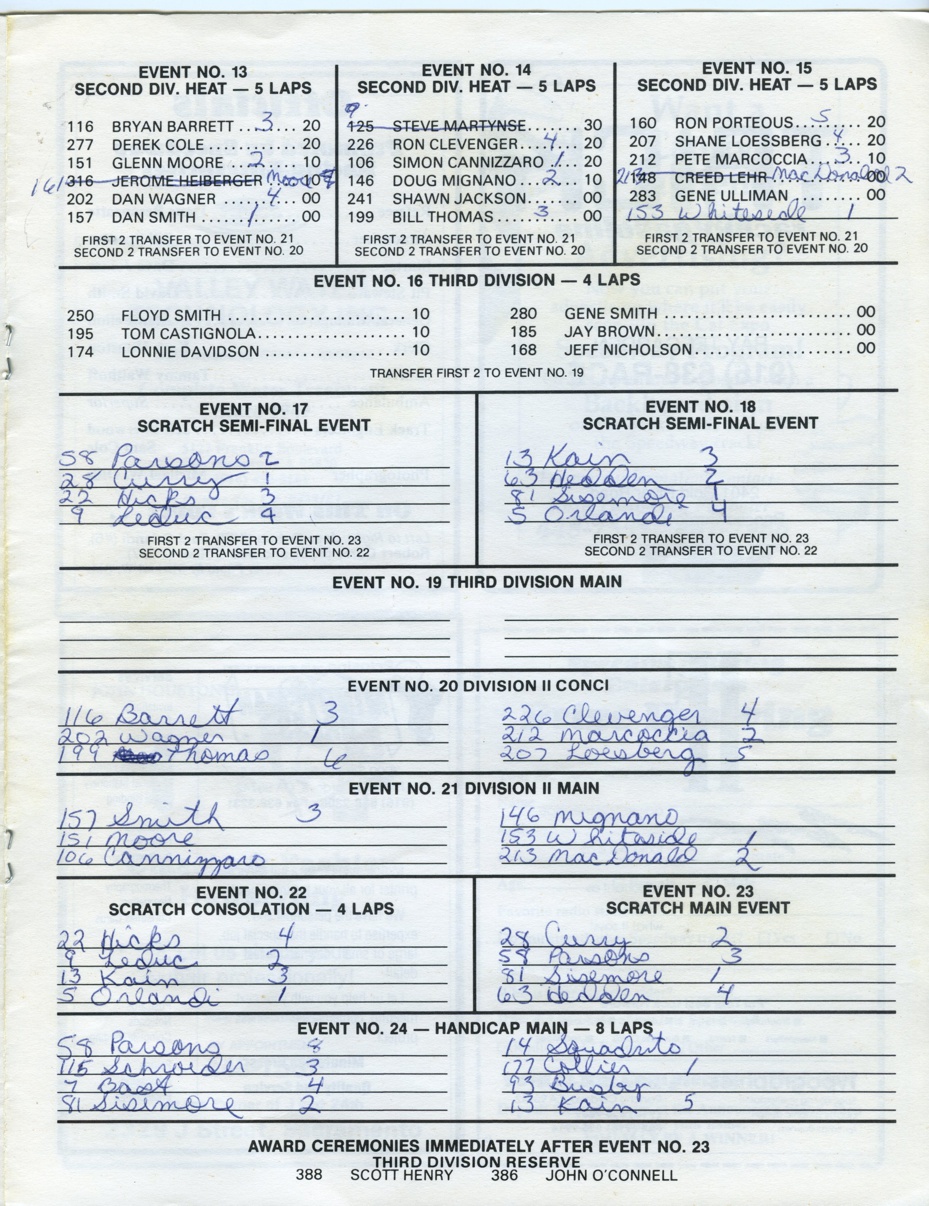 EVENT NO. 13
SECOND DIV. HEAT — 5 LAPS
116 BRYAN BARRETT ...3.... 20
277 DEREK COLE ............ 20
151 GLENN MOORE ..2..... 10
161 316 JEROME HEIBERGER Moore 10
202 DAN WAGNER .....4... 00
157 DAN SMITH .....1...... 00
FIRST 2 TRANSFER TO EVENT NO. 21
SECOND 2 TRANSFER TO EVENT NO. 20
EVENT NO. 14
SECOND DIV. HEAT — 5 LAPS
125 STEVE MARTYNSE ....... 30
226 RON CLEVENGER ..4.... 20
106 SIMON CANNIZZARO .1.. 20
146 DOUG MIGNANO ..2..... 10
241 SHAWN JACKSON........ 00
199 BILL THOMAS ...3....... 00
FIRST 2 TRANSFER TO EVENT NO. 21
SECOND 2 TRANSFER TO EVENT NO. 20
EVENT NO. 15
SECOND DIV. HEAT — 5 LAPS
160 RON PORTEOUS ..5........ 20
207 SHANE LOESSBERG .4... 20
212 PETE MARCOCCIA ..3.... 10
213 148 CREED LEHR MacDonald 2
283 GENE ULLIMAN .......... 00
153 Whiteside 1
FIRST 2 TRANSFER TO EVENT NO. 21
SECOND 2 TRANSFER TO EVENT NO. 20
EVENT NO. 16 THIRD DIVISION — 4 LAPS
250 FLOYD SMITH........................ 10
195 TOM CASTIGNOLA..................... 10
174 LONNIE DAVIDSON.................... 10
280 GENE SMITH......................... 00
185 JAY BROWN.......................... 00
168 JEFF NICHOLSON..................... 00
TRANSFER FIRST 2 TO EVENT NO. 19
EVENT NO. 17
SCRATCH SEMI-FINAL EVENT
58 Parsons 2
28 Curry 1
22 Hicks 3
9 Leduc 4
FIRST 2 TRANSFER TO EVENT NO. 23
SECOND 2 TRANSFER TO EVENT NO. 22
EVENT NO. 18
SCRATCH SEMI-FINAL EVENT
13 Kain 3
63 Hedden 2
81 Sisemore 1
5 Orlandi 4
FIRST 2 TRANSFER TO EVENT NO. 23
SECOND 2 TRANSFER TO EVENT NO. 22
EVENT NO. 19 THIRD DIVISION MAIN
EVENT NO. 20 DIVISION II CONCI
116 Barrett 3
202 Wagner 1
199 Thomas 6
226 Clevenger 4
212 Marcoccia 2
207 Loesberg 5
EVENT NO. 21 DIVISION II MAIN
157 Smith 3
151 Moore
106 Cannizzaro
146 Mignano
153 Whitaside 1
213 MacDonald 2
EVENT NO. 22
SCRATCH CONSOLATION — 4 LAPS
22 Hicks 4
9 Leduc 2
13 Kain 3
5 Orlandi 1
EVENT NO. 23
SCRATCH MAIN EVENT
28 Curry 2
58 Parsons 3
81 Sisemore 1
63 Hedden 4
EVENT NO. 24 — HANDICAP MAIN — 8 LAPS
58 Parsons 8
115 Schroeder 3
7 Bast 4
81 Sisimore 2
14 Squadrito
177 Collier 1
93 Busby
13 Kain 5
AWARD CEREMONIES IMMEDIATELY AFTER EVENT NO. 23
THIRD DIVISION RESERVE
388 SCOTT HENRY 386 JOHN O'CONNELL